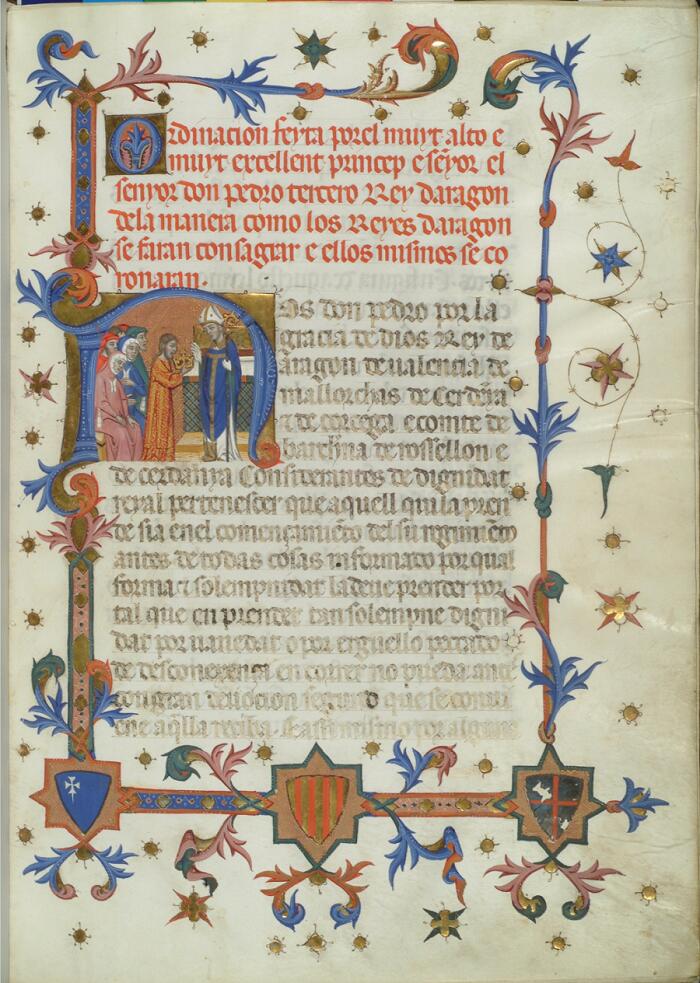 Ordinacion feyta por el muyt alto e
muyt excellent princep e seyor el
senyor don pedro tercero Rey daragon
dela manera como los Reyes daragon
se faran consagrar e ellos mismos se co
ronaran.
Nos don pedro por la
gracia de dios Rey de
aragon de valencia de
mallorchas de Cerdenya
& de corcega e comte de
barchna de rossellon e
de cerdanya Considerantes de dignidat
reyal pertenescer que aquell qui la pren
de sia en el començamiẽto del su regimiẽto
antes de todas cosas informado por qual
forma & solempnidat la deve prender por
tal que en prender tan solempne digni
dat por vanedat o por erguello peccado
de desconexença en correr no pueda ante
con gran devocion segund que se convi
ene aq̃lla reciba. E assi mismo por alguna